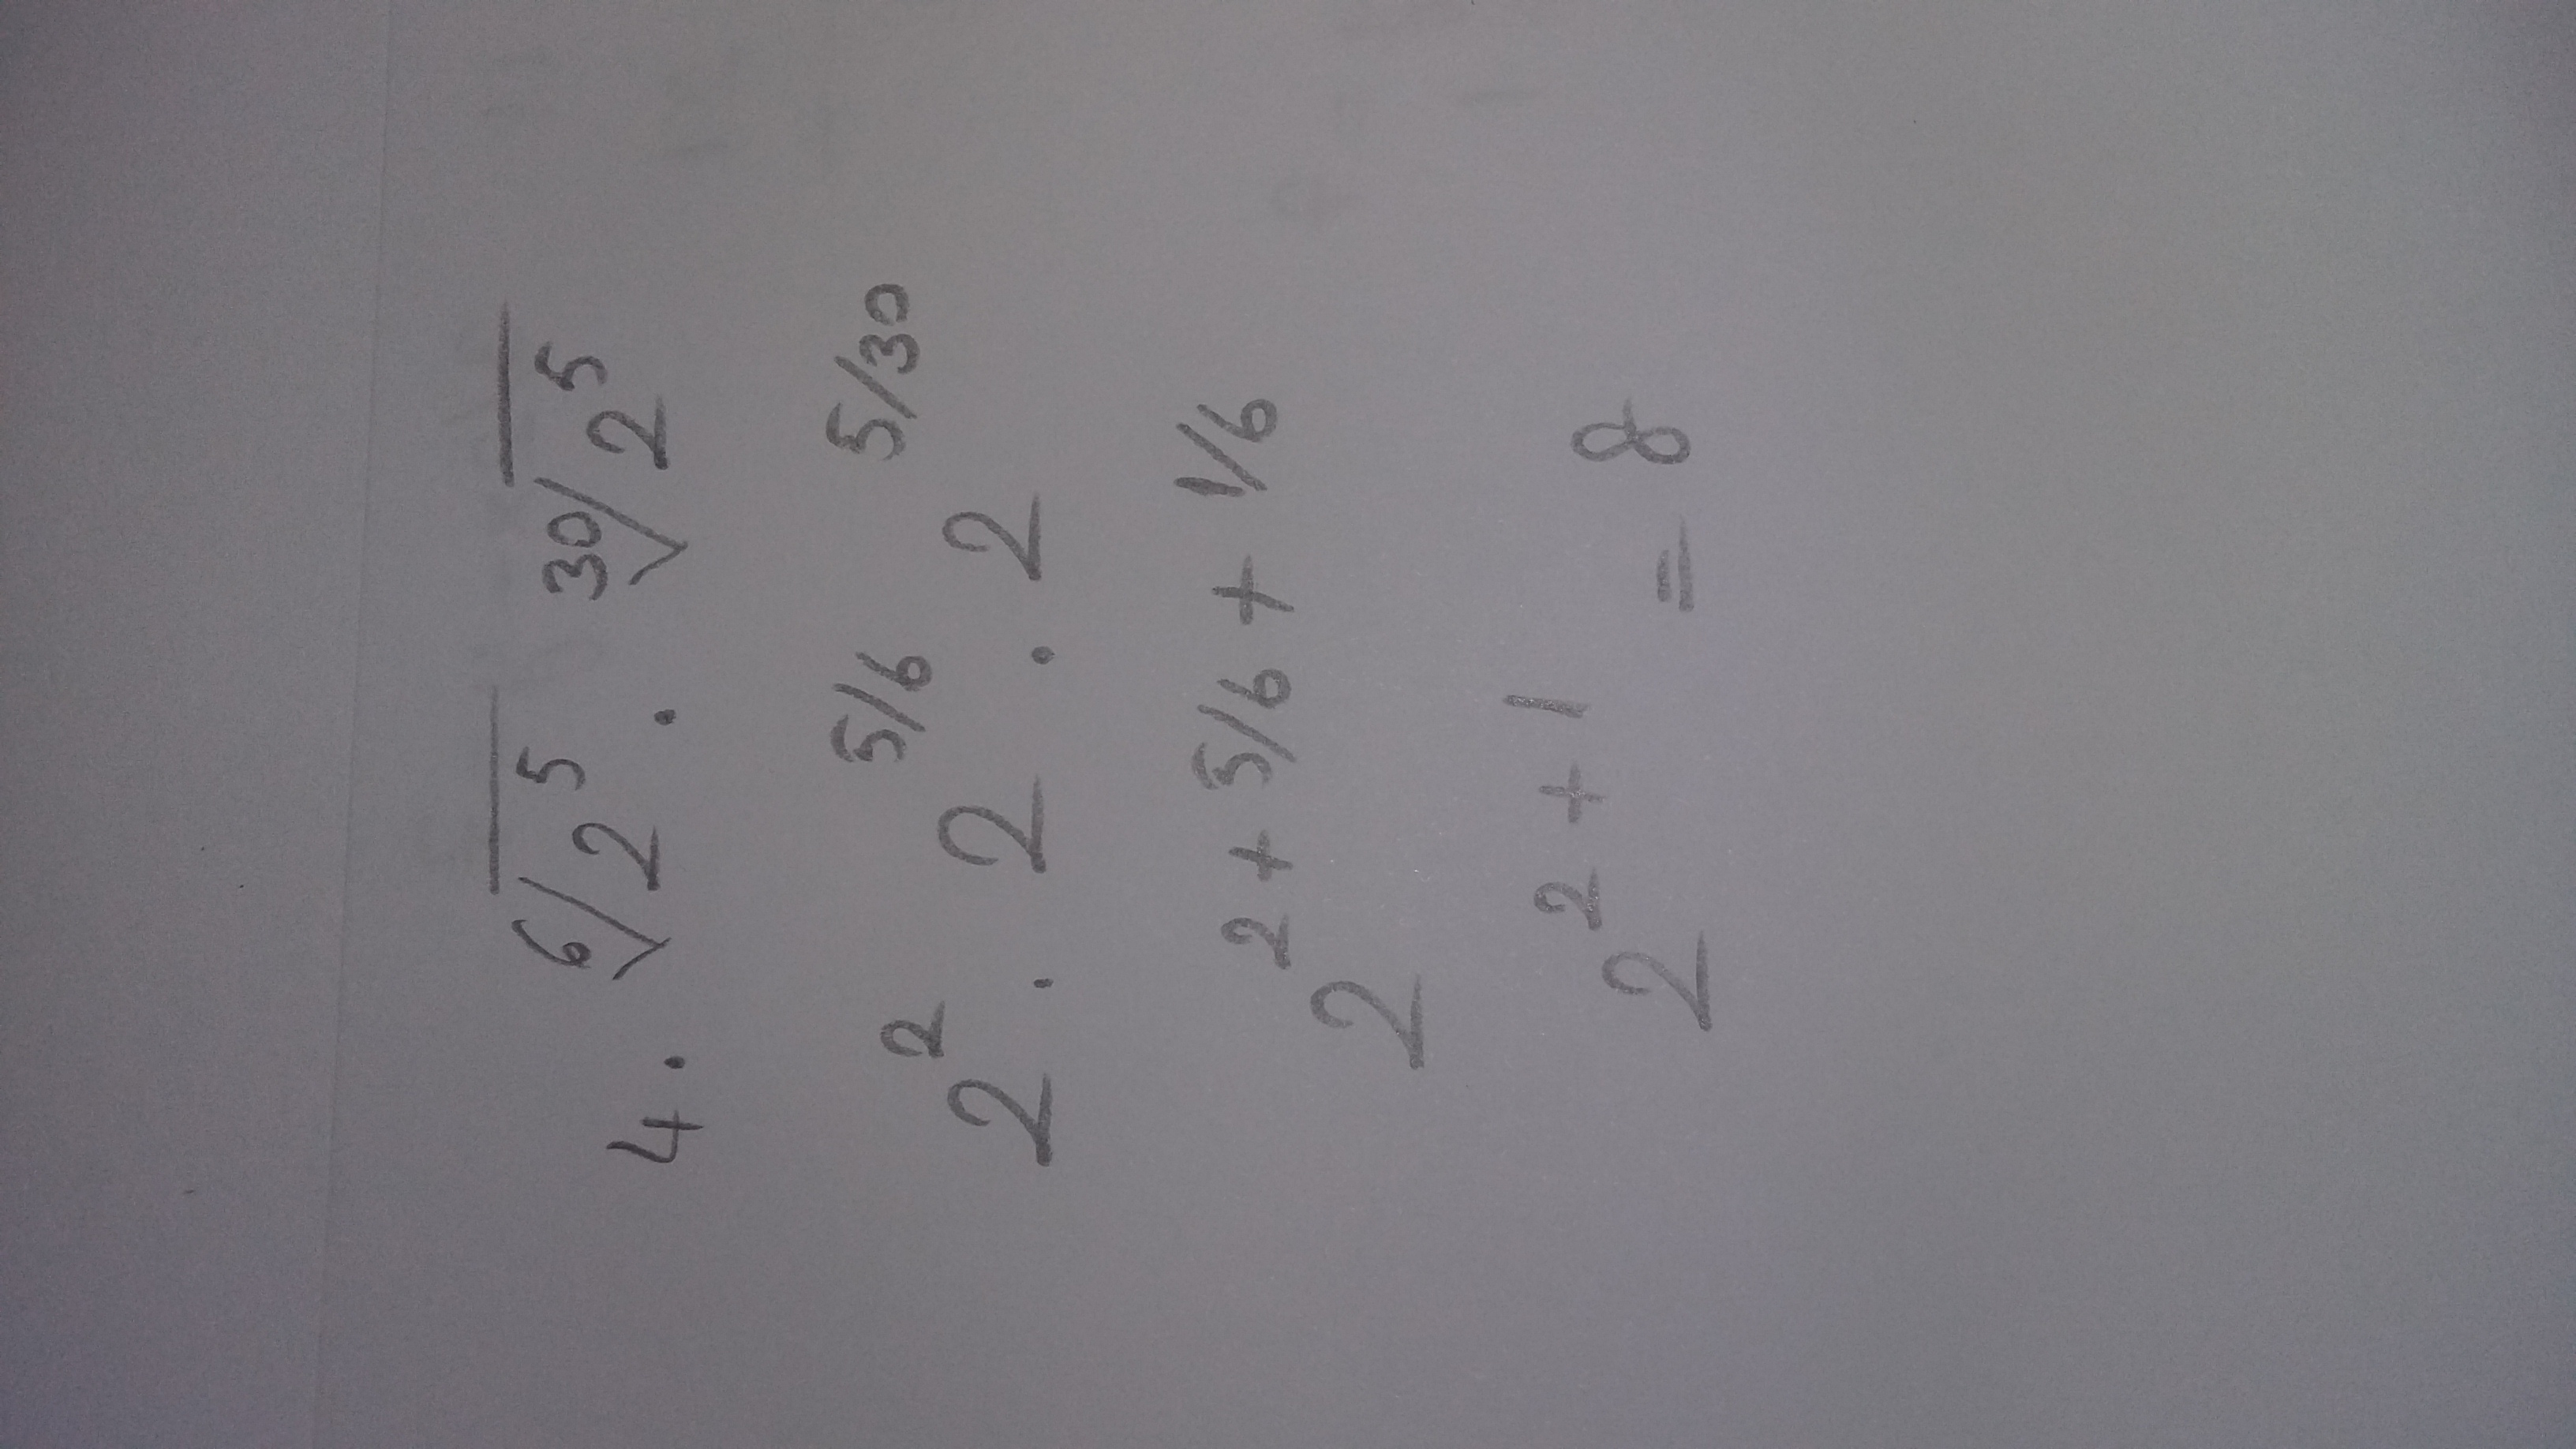 4 . ⁶√2⁵ . ³⁰√2⁵
2² . 2^5/6 . 2^5/30
2^2 + 5/6 + 1/6
2^2 + 1 = 8